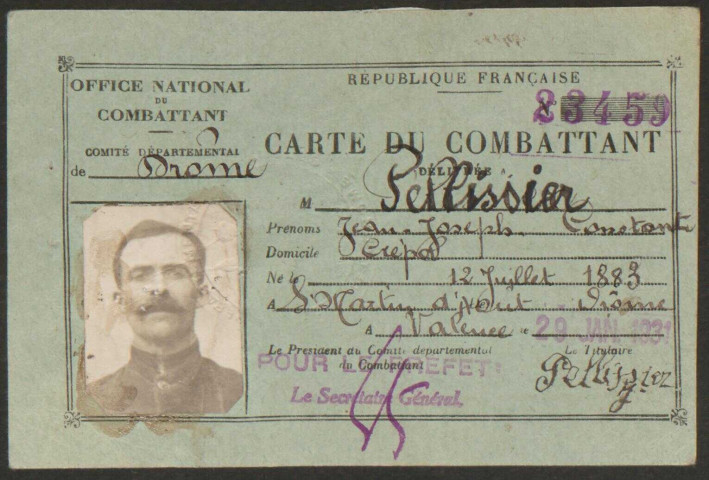 RÉPUBLIQUE FRANÇAISE
OFFICE NATIONAL
DU
COMBATTANT
23459
COMITÉ DÉPARTEMENTAL
de Drôme
CARTE DU COMBATTANT
DÉLIVRÉE A
M Pellissier
Prénoms Jean-Joseph Constant
Domicile Crépol
Né le 12 Juillet 1883
A St Martin d'Août Drôme
A Valence le 29 JAN. 1931
Le Président du Comité départemental
du Combattant
Le Titulaire
POUR LE PREFET:
Le Secrétaire Général,
Pellissier